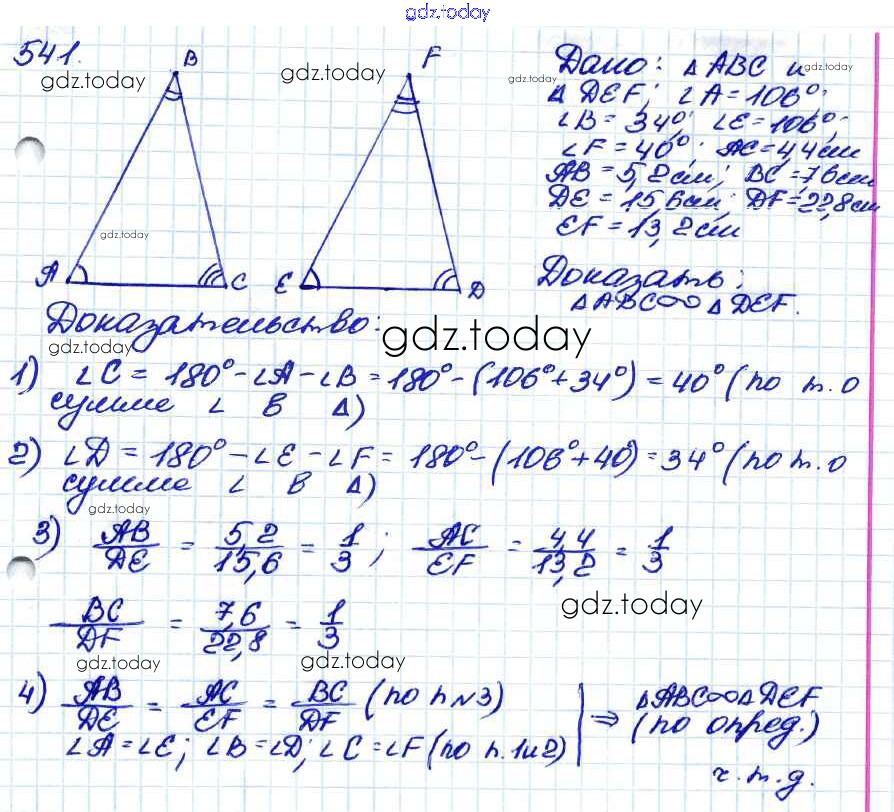 gdz.today
541.
B
F
gdz.today
gdz.today
gdz.today
gdz.today
Дано: △ABC и
△DEF; ∠A=106°;
∠B=34°; ∠E=106°;
∠F=40°; AC=4,4см
AB=5,2см; BC=7,6см
DE=15,6см; DF=22,8см
EF=13,2см
gdz.today
A
C
E
D
Доказать:
△ABC∞△DEF.
Доказательство:
gdz.today
gdz.today
1) ∠C = 180°-∠A-∠B=180°-(106°+34°)=40° (по т. о
сумме ∠ в △)
2) ∠D = 180°-∠E-∠F = 180°-(106°+40)=34° (по т. о
сумме ∠ в △)
gdz.today
3) AB/DE = 5,2/15,6 = 1/3; AC/EF = 4,4/13,2 = 1/3
BC/DF = 7,6/22,8 = 1/3
gdz.today
gdz.today
gdz.today
4) AB/DE = AC/EF = BC/DF (по п N3)
∠A=∠E; ∠B=∠D; ∠C=∠F (по п. 1и2)
⇒ △ABC∞△DEF
(по опред.)
ч.т.д.